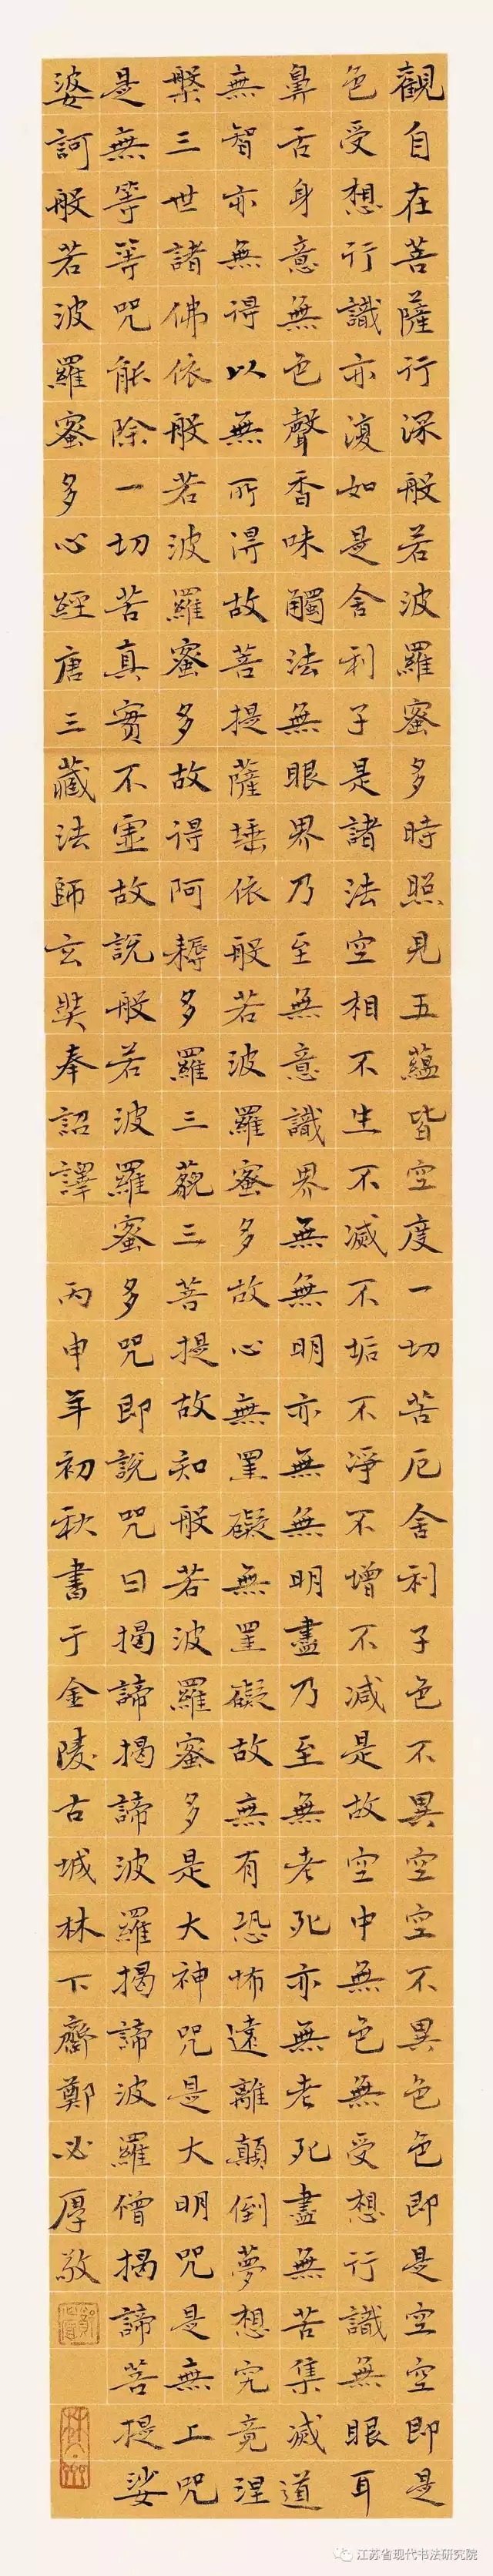 觀自在菩薩行深般若波羅蜜多時照見五蘊皆空度一切苦厄舍利子色不異空空不異色色即是空空即是
色受想行識亦復如是舍利子是諸法空相不生不滅不垢不淨不增不減是故空中無色無受想行識無眼耳
鼻舌身意無色聲香味觸法無眼界乃至無意識界無無明亦無無明盡乃至無老死亦無老死盡無苦集滅道
無智亦無得以無所得故菩提薩埵依般若波羅蜜多故心無罣礙無罣礙故無有恐怖遠離顛倒夢想究竟涅
槃三世諸佛依般若波羅蜜多故得阿耨多羅三藐三菩提故知般若波羅蜜多是大神咒是大明咒是無上咒
是無等等咒能除一切苦真實不虛故說般若波羅蜜多咒即說咒曰揭諦揭諦波羅揭諦波羅僧揭諦菩提娑
婆訶般若波羅蜜多心經唐三藏法師玄奘奉詔譯 丙申年初秋書于金陵古城林下齋鄭必厚敬
江苏省现代书法研究院